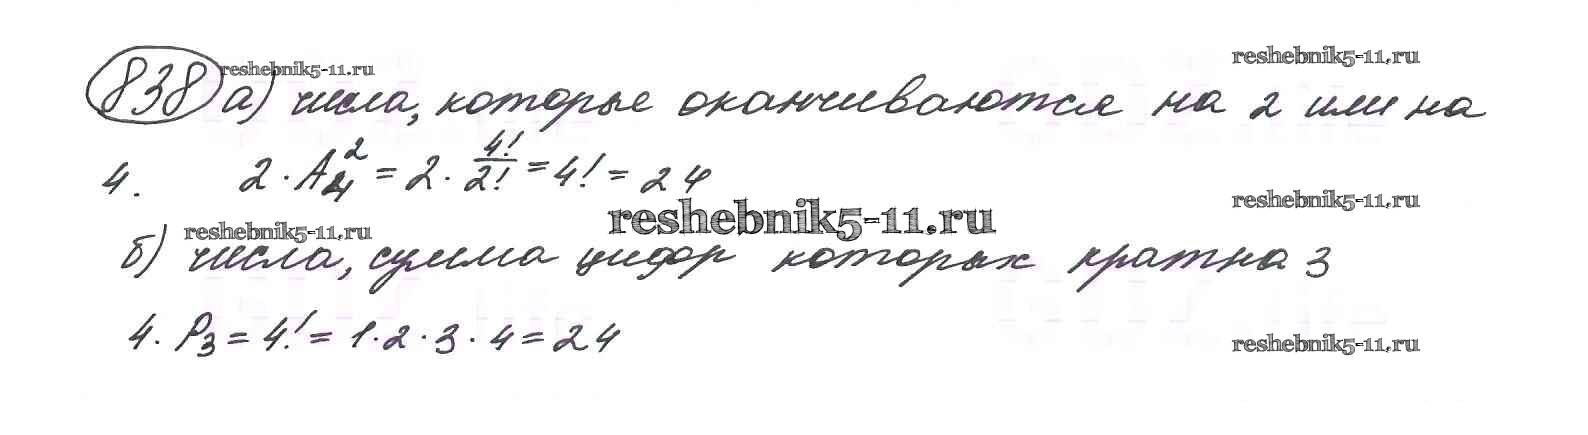 reshebnik5-11.ru
838 а) числа, которые оканчиваются на 2 или на
reshebnik5-11.ru
4. 2 · A₄² = 2 · 4!/2! = 4! = 24
reshebnik5-11.ru
reshebnik5-11.ru
reshebnik5-11.ru
б) числа, сумма цифр которых кратна 3
4 · P₃ = 4! = 1 · 2 · 3 · 4 = 24
reshebnik5-11.ru